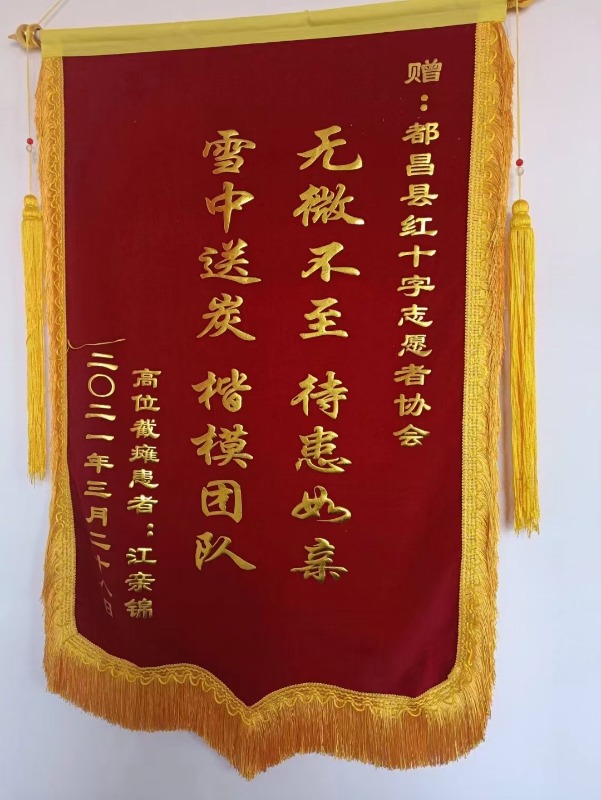 赠：都昌县红十字志愿者协会
无微不至 待患如亲
雪中送炭 楷模团队
高位截瘫患者：江亲锦
二〇二一年三月二十八日